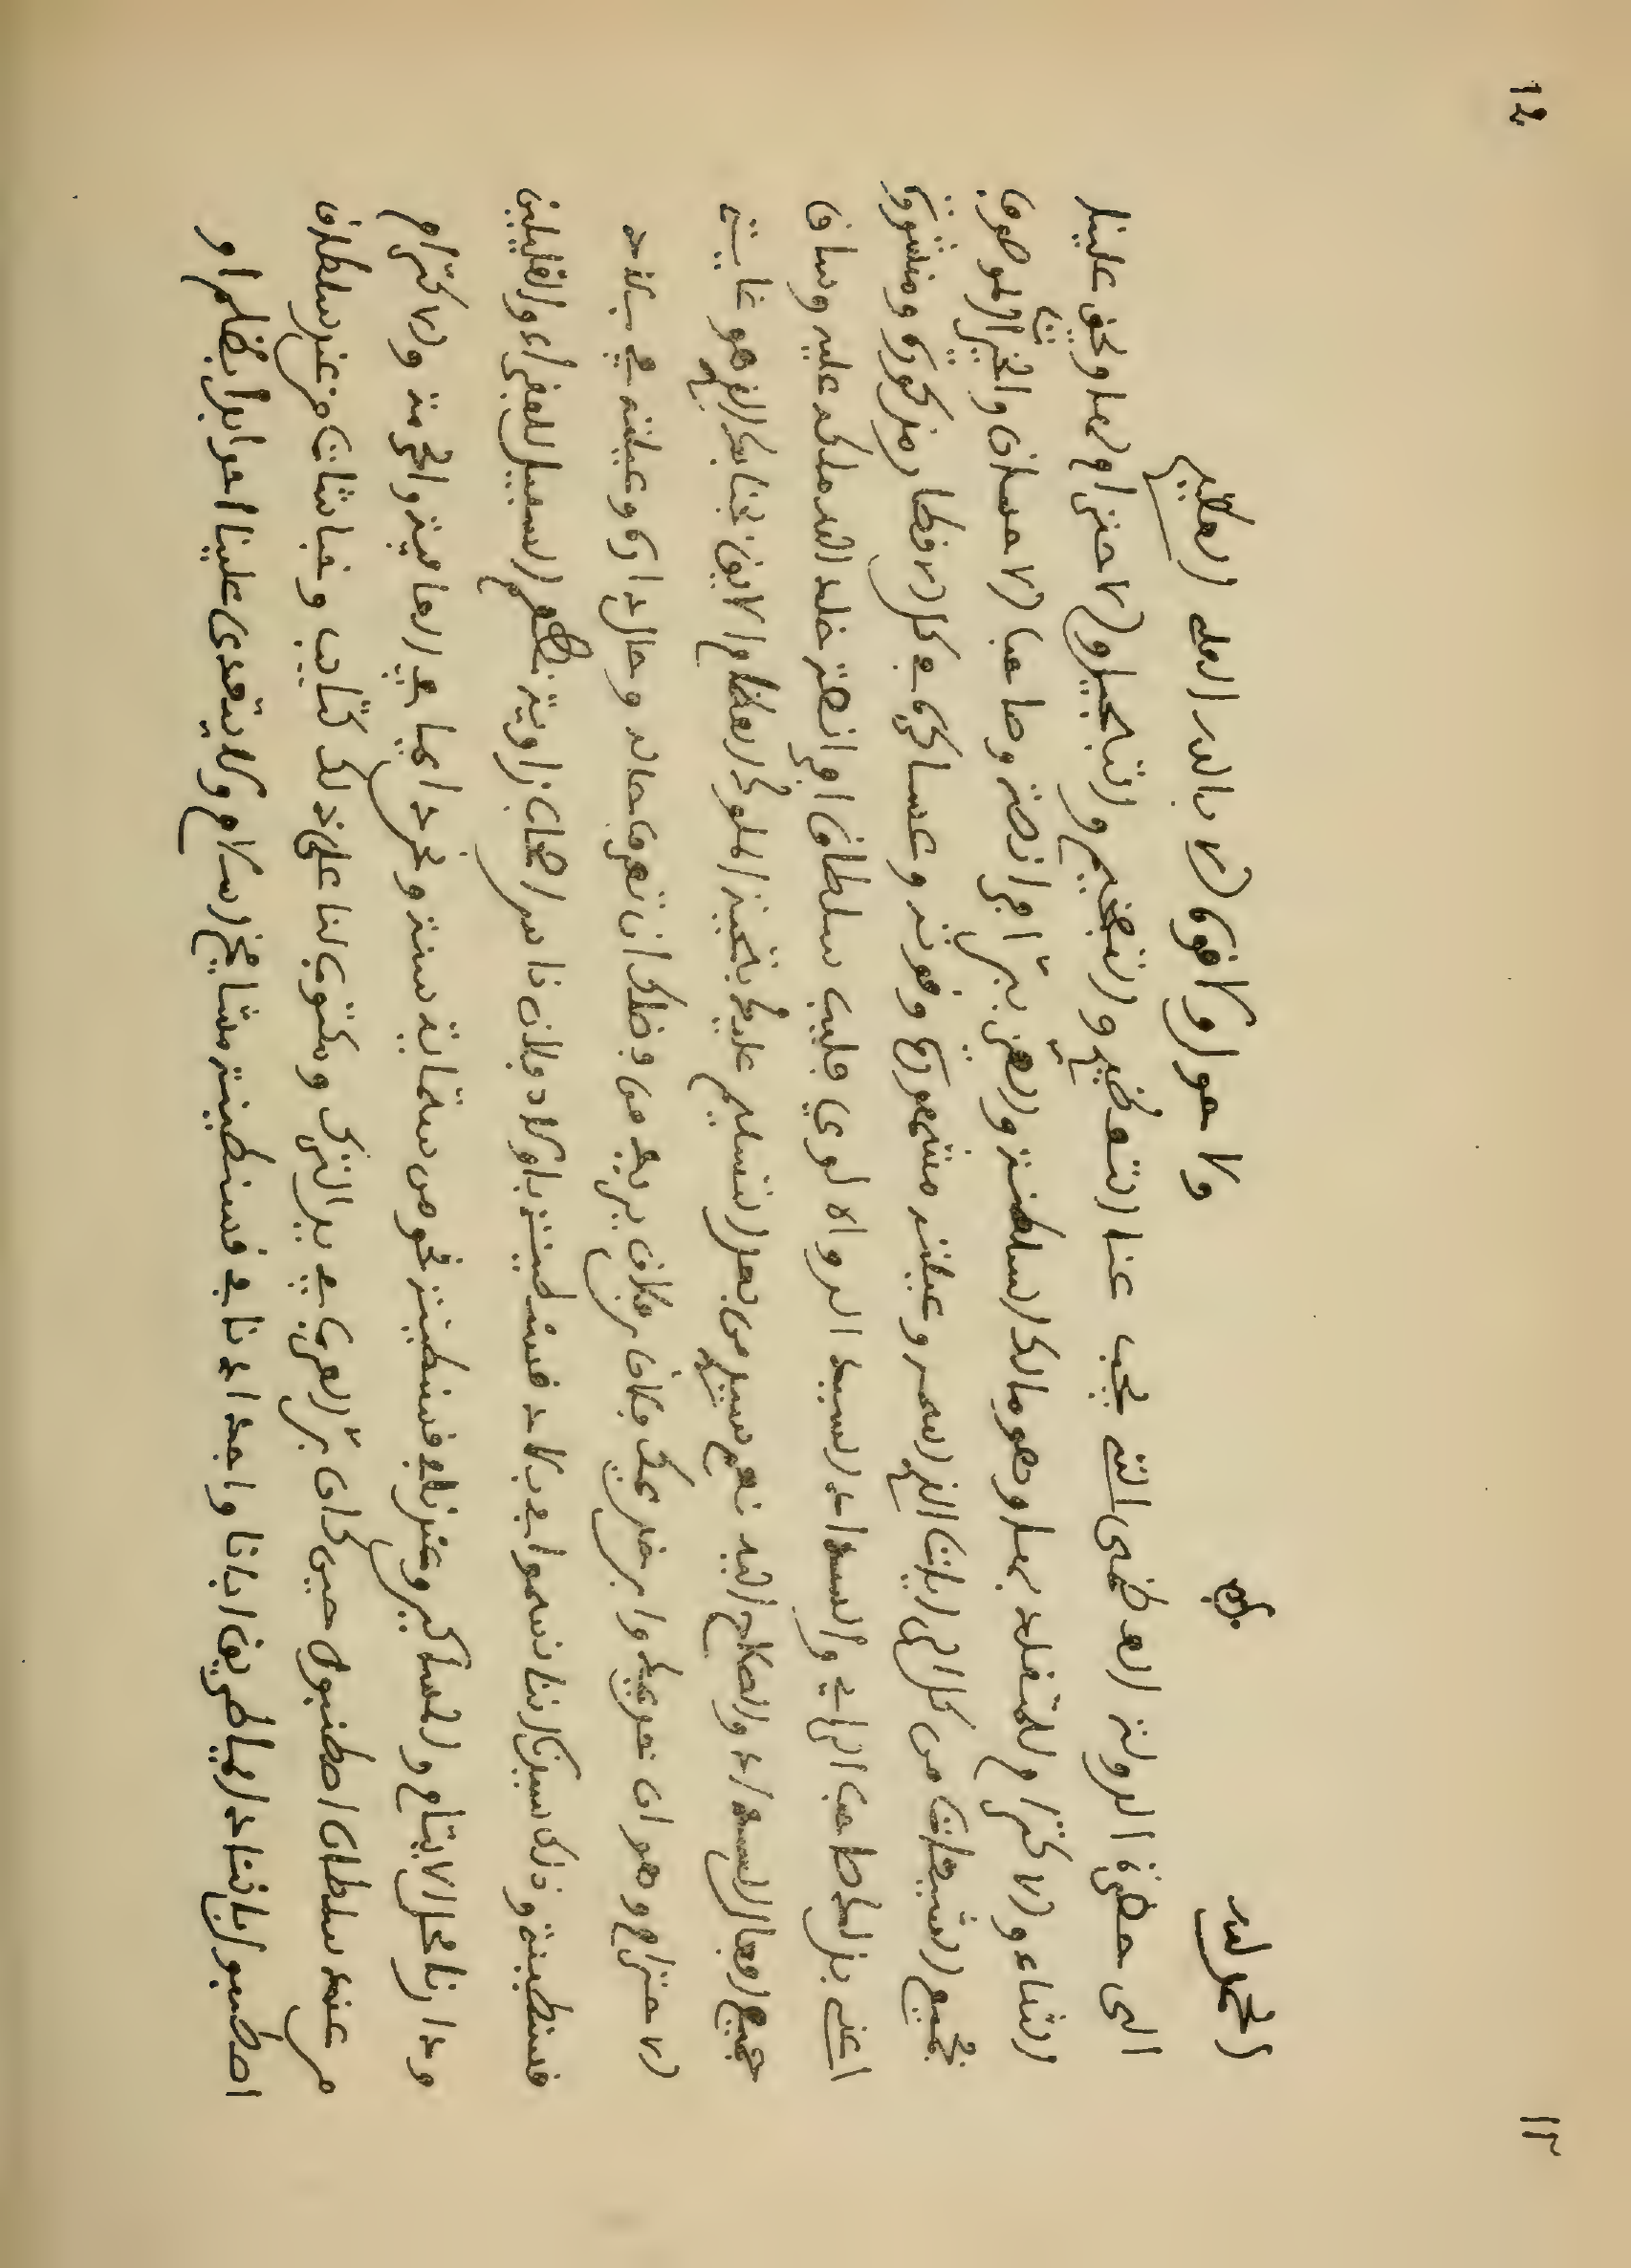 ١٣
12
الحمد لله
ولا حول ولا قوة الا بالله العلي العظيم
الى حضرة الدولة العظمى التي يجب عنا التوقير والتفخيم والتبجيل والاحترام لها ويحق علينا
الثناء والاكرام للمتقلد بها وهو مالك السلطنة والعز ببر افرانصة وصاحب الاحسان والخير الموصوف
بجميع من كرام الذي وعيلته مشهورة وقوته وعساكره في كل الاقطار مذكورة ومنشورة
اعني بذلك صاحب الراي والسداد السيد الرواه لوي فليب سلطان افرانصة خلد الله ملكه عليه وسان
جميع رجال السعداء والصلاح اليه نعم سيدي من بعد التسليم عليك بتحية الملوك العظام الايق بجنابك الذي هو غايت
الاحترام وهو ان خويدمك وابر فلان يريد من فضلك ان تعرف حاله وحال داره وعيلته في بلاده
قسنطينة وذلك سيدنا اننا نسموا في بلاد قسنطينة باولاد بلان ناس اصحاب زاوية نطعم السبيل للفقراء والقليلين
ودارنا محل الايتام والمساكير وعزنا في قسنطينة نحو من ستماية سنة ونحن دايما في العافية والحرمة والاكرام
من عند سلطان اصطنبول حين كان بر العرب في يد الترك ومكتوب لنا على ذلك كتايب ونباشات من عند سلطان
اصطنبول باننا دايما طريق ابانا واجدادنا في قسنطينة مشايخ اسلام ولا يتعدى علينا احد ابدا بظلم او